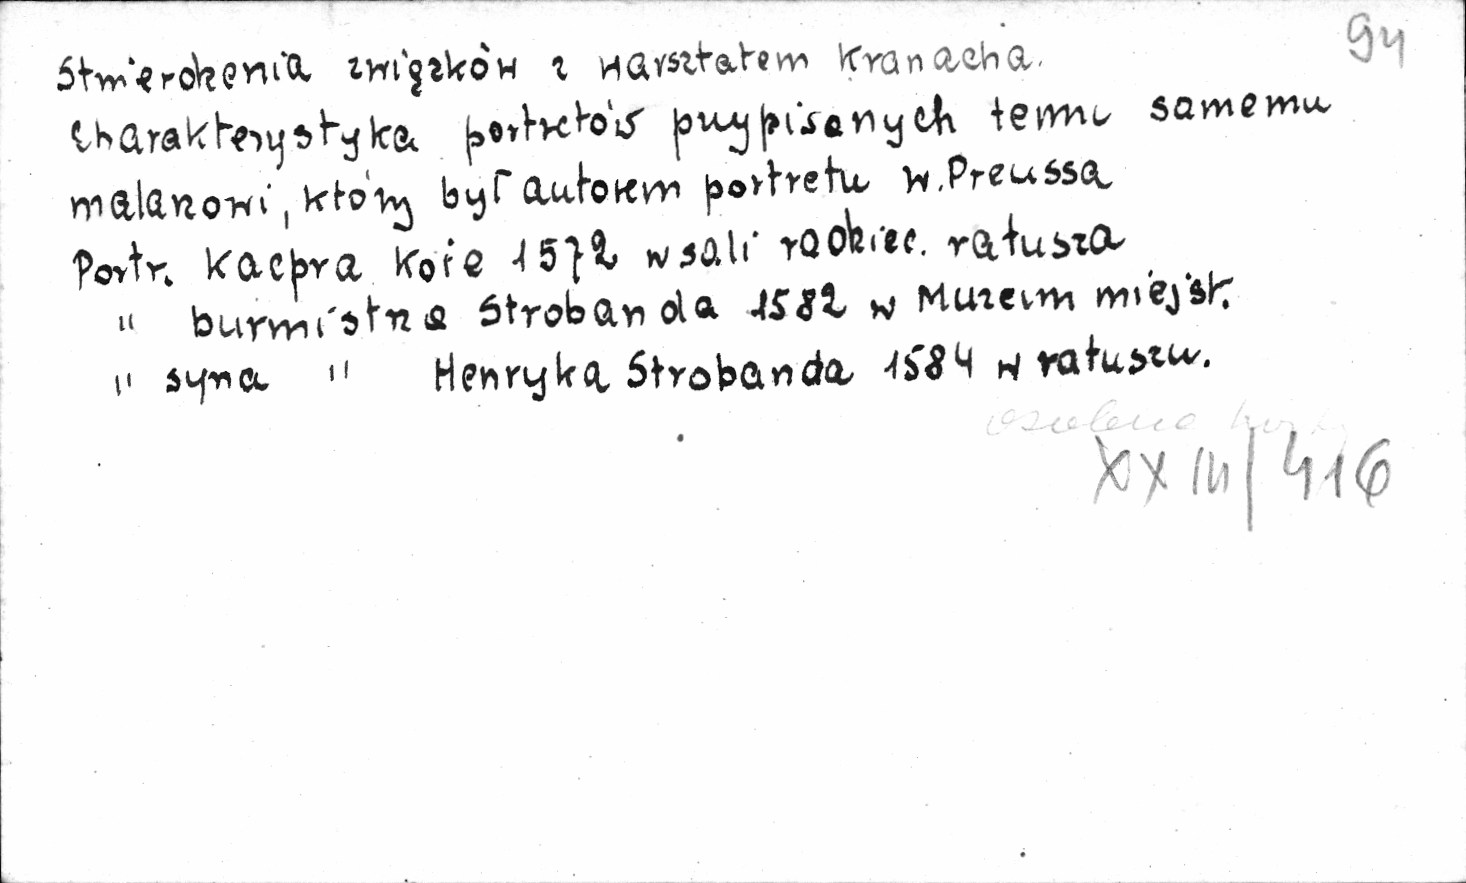 94
Stwierdzenia związków z warsztatem Kranacha.
Charakterystyka portretów przypisanych temu samemu
malarzowi, który był autorem portretu w. Preussa
Portr. Kacpra Koje 1572 w sali radziec. ratusza
" burmistrza Strobanda 1582 w Muzeum miejsk.
" syna " Henryka Strobanda 1584 w ratuszu.
XXIII/416